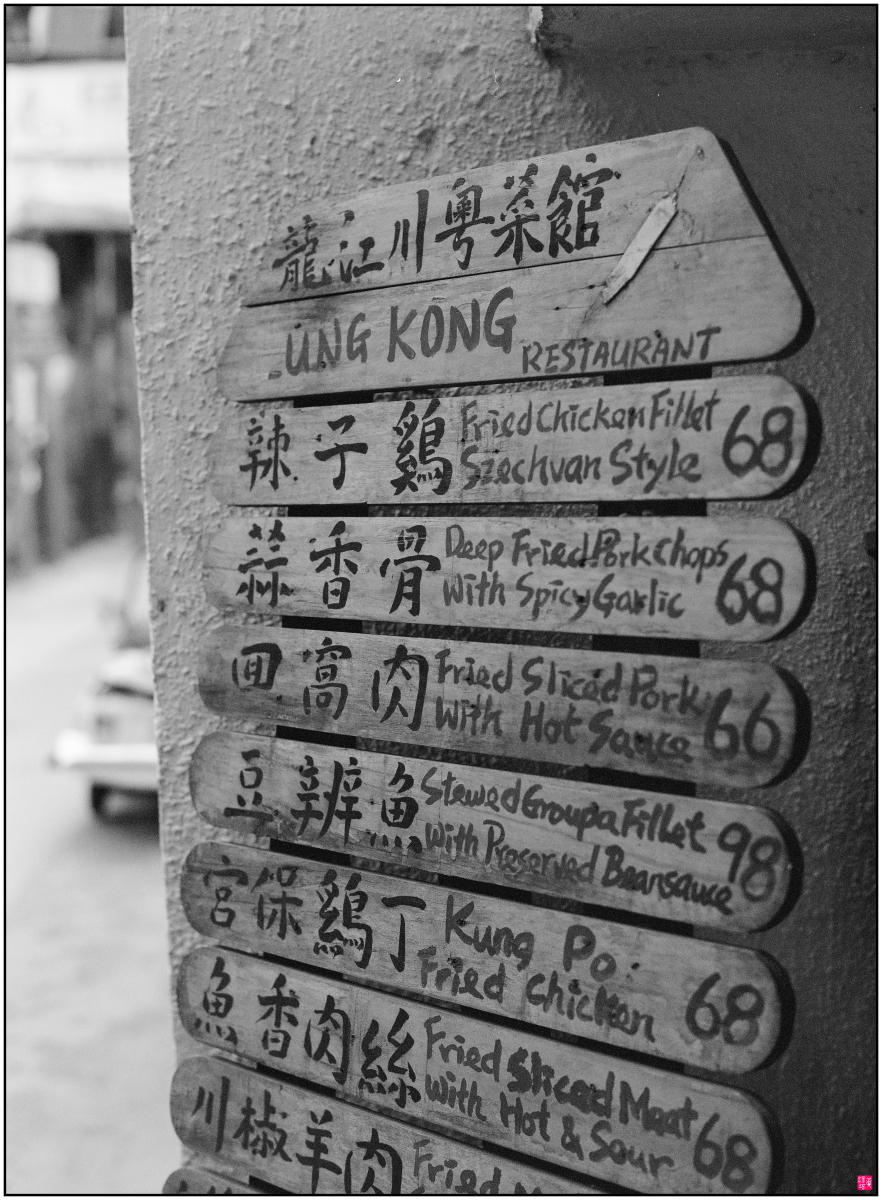 龍江川粵菜館
UNG KONG
RESTAURANT
辣子鷄 Fried Chicken Fillet
Szechvan Style 68
蒜香骨 Deep Fried Pork chops
With Spicy Garlic 68
回窩肉 Fried Sliced Pork
With Hot Sauce 66
豆辨魚 Stewed Groupa Fillet
With Preserved Beansauce 98
宮保鷄丁 Kung Po
Fried Chicken 68
魚香肉絲 Fried Sliced Meat
With Hot & Sour 68
川椒羊肉 Fried